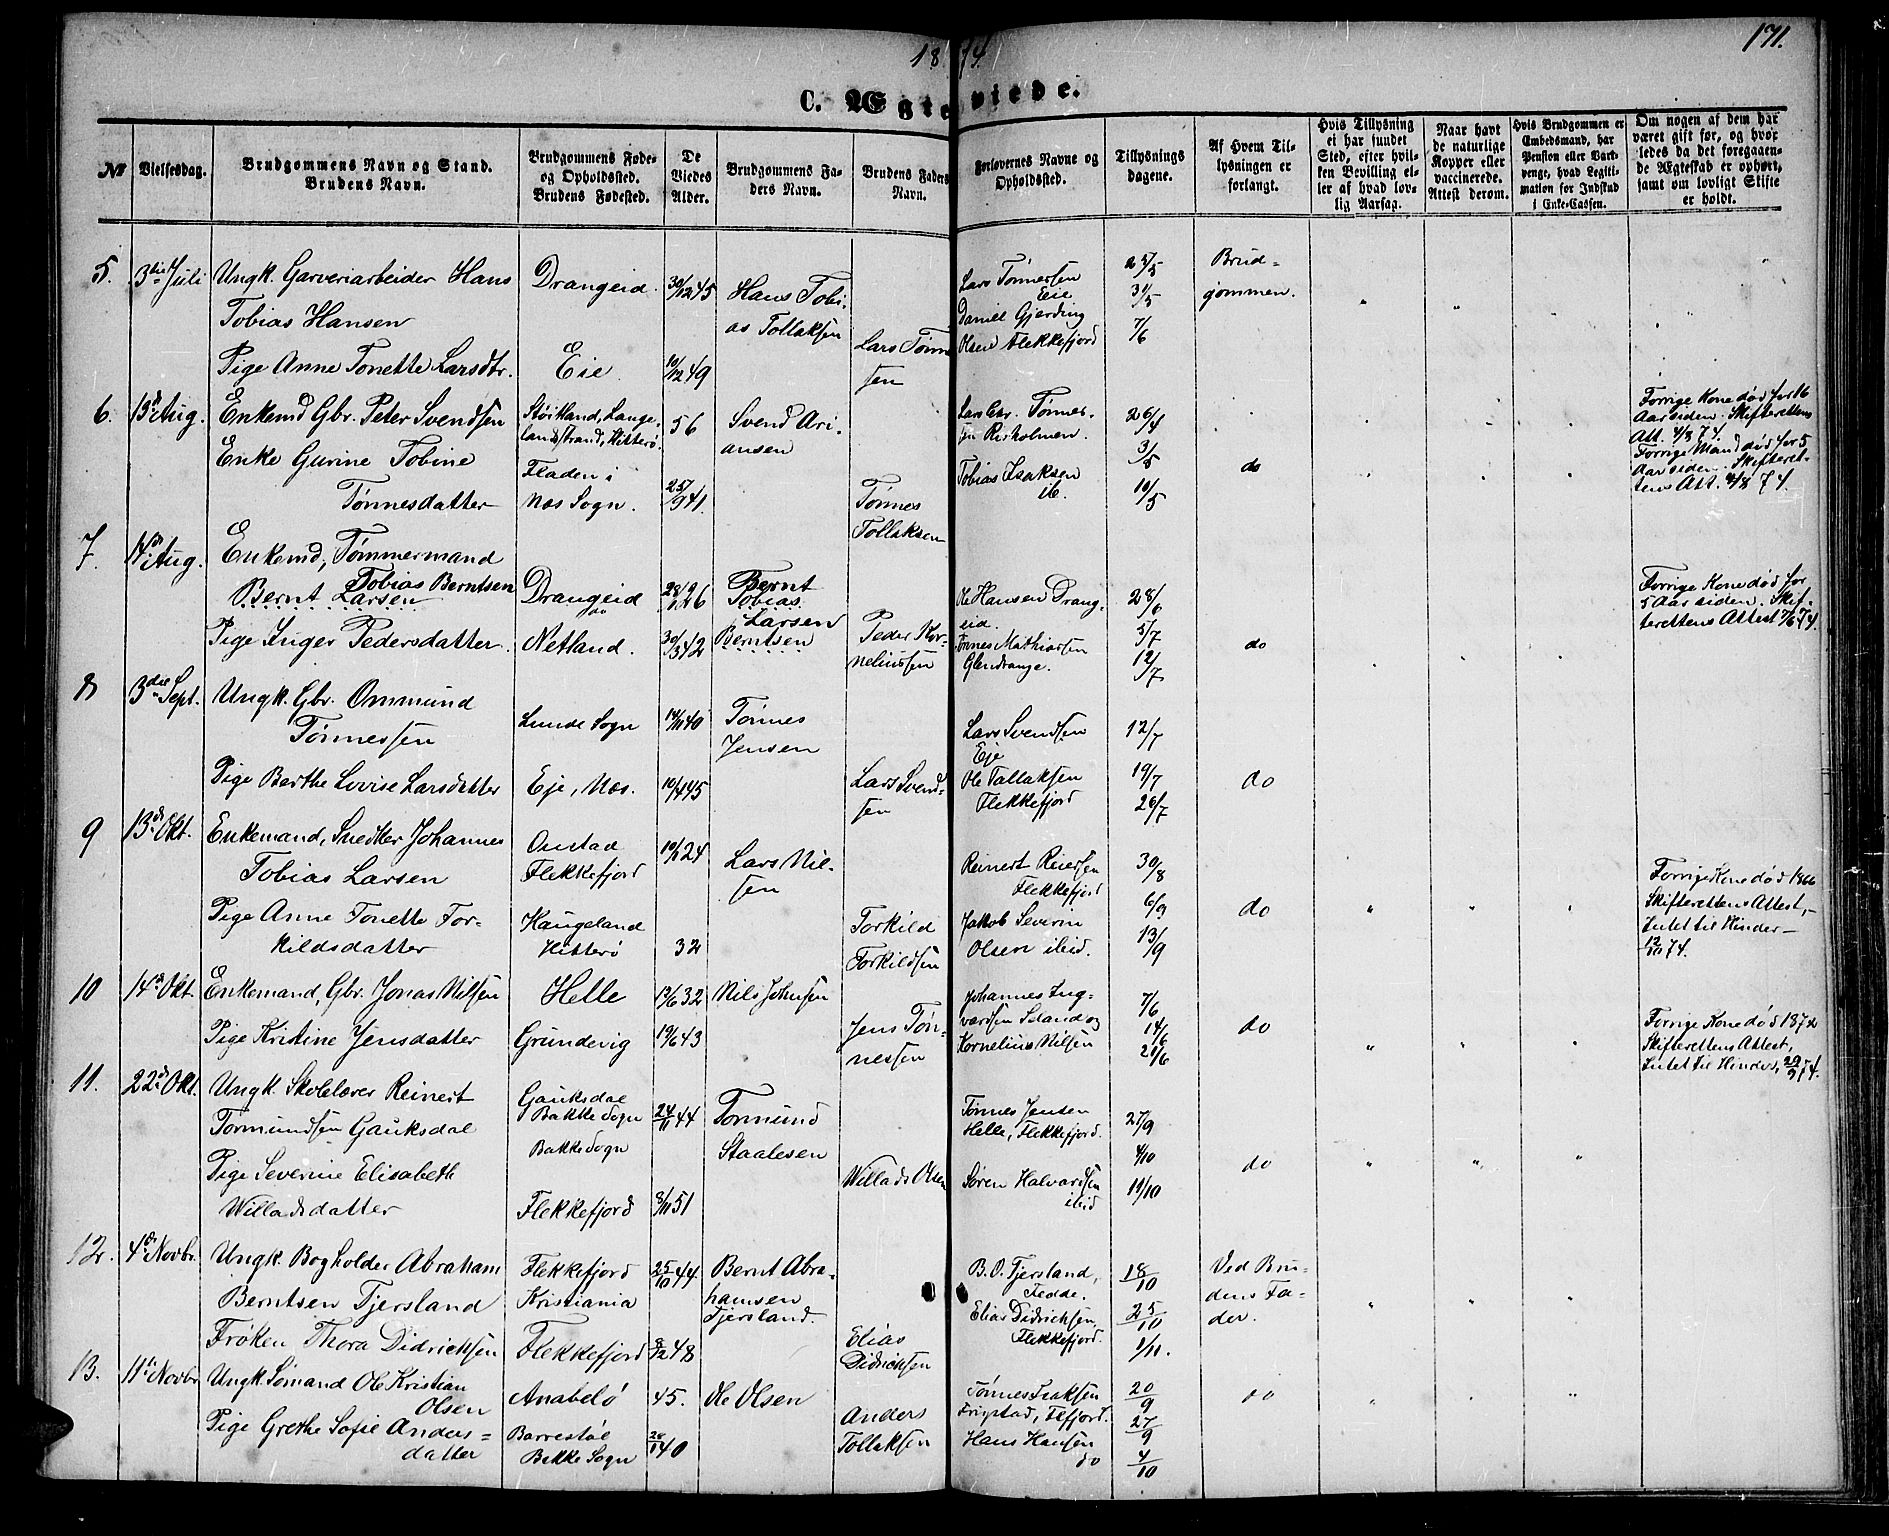 1874.
171.
C. Ægteviede.
No
Vielsesdag.
Brudgommens Navn og Stand.
Brudens Navn.
Brudgommens Føde-
og Opholdssted.
Brudens Fødested.
De
Viedes
Alder.
Brudgommens Fa-
ders Navn.
Brudens Faders
Navn.
Forlovernes Navne og
Opholdssted.
Tillysnings
dagene.
Af Hvem Til-
lysningen er
forlangt.
Hvis Tillysning
ei har fundet
Sted, efter hvil-
ken Bevilling el-
ler af hvad lov-
lig Aarsag.
Naar havt
de naturlige
Kopper eller
vaccinerede.
Attest derom.
Hvis Brudgommen er
Embedsmand, har
Pension eller Vart-
penge, hvad Legiti-
mation for Indskud
i Enke-Cassen.
Om nogen af dem har
været gift før, og hvor-
ledes da det foregaaen-
de Ægteskab er ophørt,
samt om lovligt Skifte
er holdt.
5. 3die Juli Ungk. Garveriarbeider Hans
Tobias Hansen
Drangeid. 30/12 45 Hans Tobi-
as Tollaksen
Pige Anne Tonette Larsdtr. Eie 10/12 49 Lars Tønne
sen
Lars Tønnessen
Eie
Daniel Gjerding
Olsen Flekkefjord
25/5
31/5
7/6
Brud-
gommen.
6. 13de Aug. Enkemd Gbr. Peter Svendsen
Støitland, Lange-
landstrand, Hitterø
56 Svend Ari-
ansen
Enke Gurine Tobine
Tønnesdatter
Fladen i
Næs Sogn. 25/9 41. Tønnes
Tollaksen
Lars Chr. Tønnes-
sen Risholmen.
Tobias Isaksen
ib.
26/4
3/5
10/5
do
Forrige Kone død for 16
Aar siden. Skifterettens
Att. 4/8 74.
Forrige Mand død for 5
Aar siden. Skifteret-
tens Att. 4/8 74.
7. 14de Aug. Enkemd, Tømmermand
Tobias Berntsen
Bernt Larsen
Drangeid
do
26 Bernt
Tobias
Larsen
Berntsen
Pige Inger Pedersdatter Netland. 30/3 42 Peder Kor-
neliussen
Ole Hansen Drang-
eid.
Tønnes Mathiassen
Glendrange.
28/6
5/7
12/7
do
Forrige Kone død for
5 Aar siden. Skif-
terettens Attest 7/6 74.
8 3die Sept. Ungk. Gbr. Ommund
Tønnessen
Lunde Sogn 14/11 40 Tønnes
Jensen
Pige Berthe Lovise Larsdatter Eje, Næs. 10/4 45 Lars Svend-
sen
Lars Svendsen
Eje
Ole Tallaksen
Flekkefjord
12/7
19/7
26/7
do
9 13de Okt. Enkemand, Snedker Johannes
Tobias Larsen
Onstad
Flekkefjord
10/1 24 Lars Nil-
sen
Pige Anne Tonette Tor-
kildsdatter
Haugeland
Hitterø 32 Torkild
Torkildsen
Reinert Reiersen
Flekkefjord
Jakob Severin
Olsen ibid.
30/8
6/9
13/9
do
Forrige Kone død 1866
Skifterettens Attest,
Intet til Hinder
12/10 74.
10 14de Okt. Enkemand, Gbr. Jonas Nilsen Helle 13/6 32 Nils Johnsen
Pige Kristine Jensdatter Grundevig 19/6 43 Jens Tøn-
nessen
Johannes Ing-
vardsen Seland og
Kornelius Nilsen
7/6
14/6
21/6
do
Forrige Kone død 1872
Skifterettens Attest,
Intet til Hinder, 29/9 74.
11. 22de Okt. Ungk. Skolelærer Reinert
Tormundsen Gauksdal
Gauksdal
Bakke Sogn
Bakke Sogn
24/11 44 Tormund
Staalesen
Pige Severine Elisabeth
Willadsdatter Flekkefjord 8/11 51 Willads Olsen
Tønnes Jensen
Helle, Flekkefjord.
Søren Halvardsen
ibid
27/9
4/10
11/10
do
12. 4de Novbr. Ungk. Bogholder Abraham
Berntsen Tjersland
Flekkefjord
Kristiania
25/10 44. Bernt Abra-
hamsen
Tjersland.
Frøken Thora Didrichsen Flekkefjord 8/12 48 Elias
Didrichsen
B. O. Tjersland,
Fedde.
Elias Didrichsen,
Flekkefjord.
18/10
25/10
1/11.
Ved Bru-
dens Fa-
der.
13. 11te Novbr Ungk. Sømand Ole Kristian
Olsen
Anabelø 45. Ole Olsen
Pige Grethe Sofie Anders-
datter
Barrestøl
Bakke Sogn 40 Anders
Tollaksen
Tønnes Isaksen
Hans Hansen
do
20/9
27/9
4/10
do